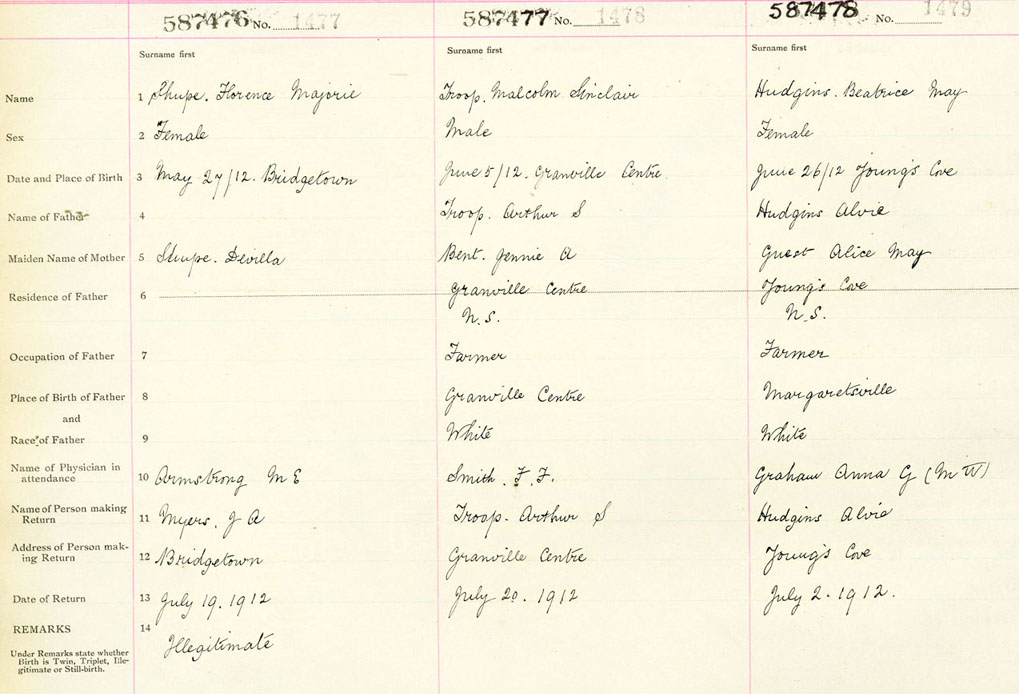 587476 No. 1477 587477 No. 1478 587478 No. 1479
Surname first Surname first Surname first
Name 1 Shupe. Florence Majorie Troop. Malcolm Sinclair Hudgins. Beatrice May
Sex 2 Female Male Female
Date and Place of Birth 3 May 27/12. Bridgetown June 5/12. Granville Centre. June 26/12 Young's Cove
Name of Father 4 Troop. Arthur S Hudgins Alvie
Maiden Name of Mother 5 Shupe. Devilla Bent. Jennie A Guest Alice May
Residence of Father 6 Granville Centre Young's Cove
N.S. N.S.
Occupation of Father 7 Farmer Farmer
Place of Birth of Father 8 Granville Centre Margaretsville
and
Race of Father 9 White White
Name of Physician in
attendance 10 Armstrong M E Smith. F. F. Graham Anna G (M W)
Name of Person making
Return 11 Myers, J A Troop. Arthur S Hudgins Alvie
Address of Person mak-
ing Return 12 Bridgetown Granville Centre Young's Cove
Date of Return 13 July 19. 1912 July 20. 1912 July 2. 1912.
REMARKS 14 Illegitimate
Under Remarks state whether
Birth is Twin, Triplet, Ille-
gitimate or Still-birth.